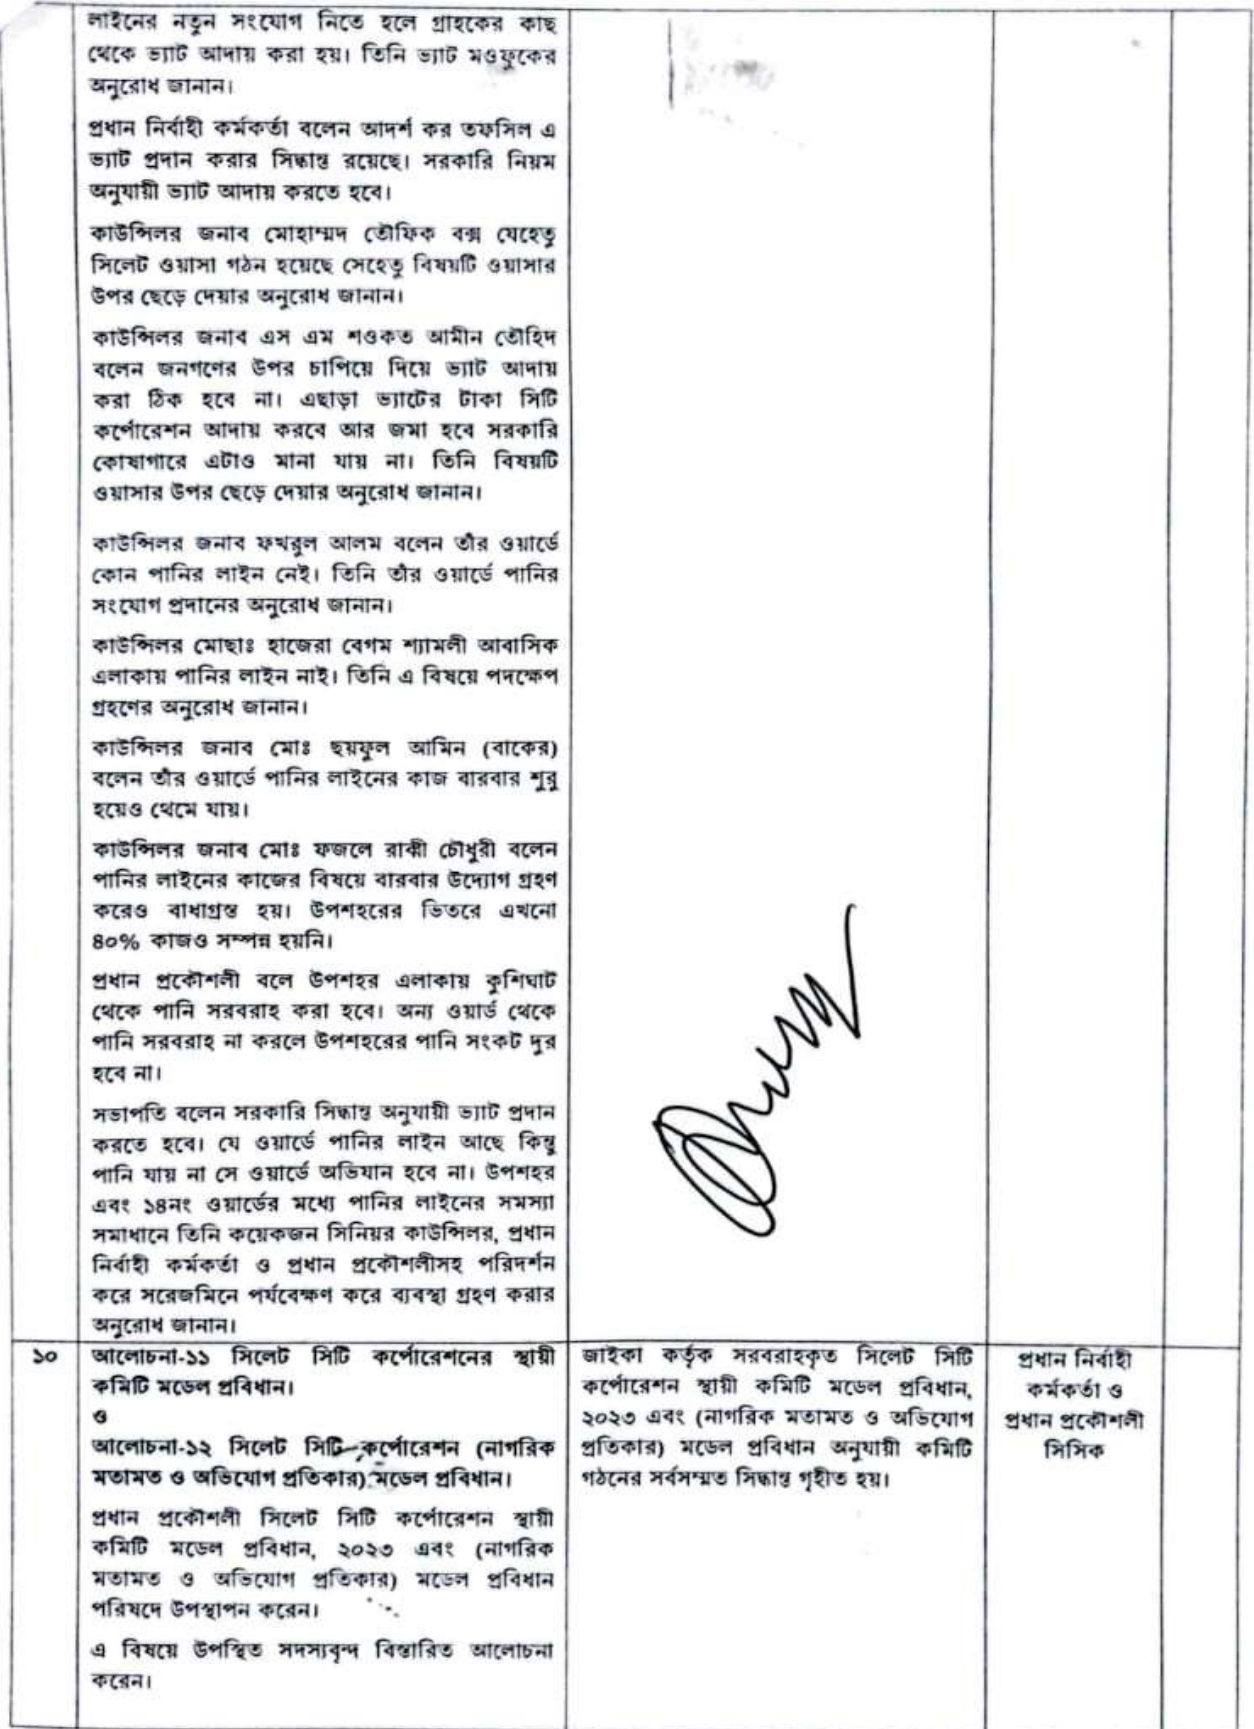 লাইনের নতুন সংযোগ নিতে হলে গ্রাহকের কাছ
থেকে ভ্যাট আদায় করা হয়। তিনি ভ্যাট মওফুকের
অনুরোধ জানান।
প্রধান নির্বাহী কর্মকর্তা বলেন আদর্শ কর তফসিল এ
ভ্যাট প্রদান করার সিদ্ধান্ত রয়েছে। সরকারি নিয়ম
অনুযায়ী ভ্যাট আদায় করতে হবে।
কাউন্সিলর জনাব মোহাম্মদ তৌফিক বক্স যেহেতু
সিলেট ওয়াসা গঠন হয়েছে সেহেতু বিষয়টি ওয়াসার
উপর ছেড়ে দেয়ার অনুরোধ জানান।
কাউন্সিলর জনাব এস এম শওকত আমীন তৌহিদ
বলেন জনগণের উপর চাপিয়ে দিয়ে ভ্যাট আদায়
করা ঠিক হবে না। এছাড়া ভ্যাটের টাকা সিটি
কর্পোরেশন আদায় করবে আর জমা হবে সরকারি
কোষাগারে এটাও মানা যায় না। তিনি বিষয়টি
ওয়াসার উপর ছেড়ে দেয়ার অনুরোধ জানান।
কাউন্সিলর জনাব ফখরুল আলম বলেন তাঁর ওয়ার্ডে
কোন পানির লাইন নেই। তিনি তাঁর ওয়ার্ডে পানির
সংযোগ প্রদানের অনুরোধ জানান।
কাউন্সিলর মোছাঃ হাজেরা বেগম শ্যামলী আবাসিক
এলাকায় পানির লাইন নাই। তিনি এ বিষয়ে পদক্ষেপ
গ্রহণের অনুরোধ জানান।
কাউন্সিলর জনাব মোঃ ছয়ফুল আমিন (বাকের)
বলেন তাঁর ওয়ার্ডে পানির লাইনের কাজ বারবার শুরু
হয়েও থেমে যায়।
কাউন্সিলর জনাব মোঃ ফজলে রাব্বী চৌধুরী বলেন
পানির লাইনের কাজের বিষয়ে বারবার উদ্যোগ গ্রহণ
করেও বাধাগ্রস্ত হয়। উপশহরের ভিতরে এখনো
৪০% কাজও সম্পন্ন হয়নি।
প্রধান প্রকৌশলী বলে উপশহর এলাকায় কুশিঘাট
থেকে পানি সরবরাহ করা হবে। অন্য ওয়ার্ড থেকে
পানি সরবরাহ না করলে উপশহরের পানি সংকট দুর
হবে না।
সভাপতি বলেন সরকারি সিদ্ধান্ত অনুযায়ী ভ্যাট প্রদান
করতে হবে। যে ওয়ার্ডে পানির লাইন আছে কিন্তু
পানি যায় না সে ওয়ার্ডে অভিযান হবে না। উপশহর
এবং ১৪নং ওয়ার্ডের মধ্যে পানির লাইনের সমস্যা
সমাধানে তিনি কয়েকজন সিনিয়র কাউন্সিলর, প্রধান
নির্বাহী কর্মকর্তা ও প্রধান প্রকৌশলীসহ পরিদর্শন
করে সরেজমিনে পর্যবেক্ষণ করে ব্যবস্থা গ্রহণ করার
অনুরোধ জানান।
১০
আলোচনা-১১ সিলেট সিটি কর্পোরেশনের স্থায়ী
কমিটি মডেল প্রবিধান।
ও
আলোচনা-১২ সিলেট সিটি কর্পোরেশন (নাগরিক
মতামত ও অভিযোগ প্রতিকার) মডেল প্রবিধান।
প্রধান প্রকৌশলী সিলেট সিটি কর্পোরেশন স্থায়ী
কমিটি মডেল প্রবিধান, ২০২৩ এবং (নাগরিক
মতামত ও অভিযোগ প্রতিকার) মডেল প্রবিধান
পরিষদে উপস্থাপন করেন।
এ বিষয়ে উপস্থিত সদস্যবৃন্দ বিস্তারিত আলোচনা
করেন।
জাইকা কর্তৃক সরবরাহকৃত সিলেট সিটি
কর্পোরেশন স্থায়ী কমিটি মডেল প্রবিধান,
২০২৩ এবং (নাগরিক মতামত ও অভিযোগ
প্রতিকার) মডেল প্রবিধান অনুযায়ী কমিটি
গঠনের সর্বসম্মত সিদ্ধান্ত গৃহীত হয়।
প্রধান নির্বাহী
কর্মকর্তা ও
প্রধান প্রকৌশলী
সিসিক